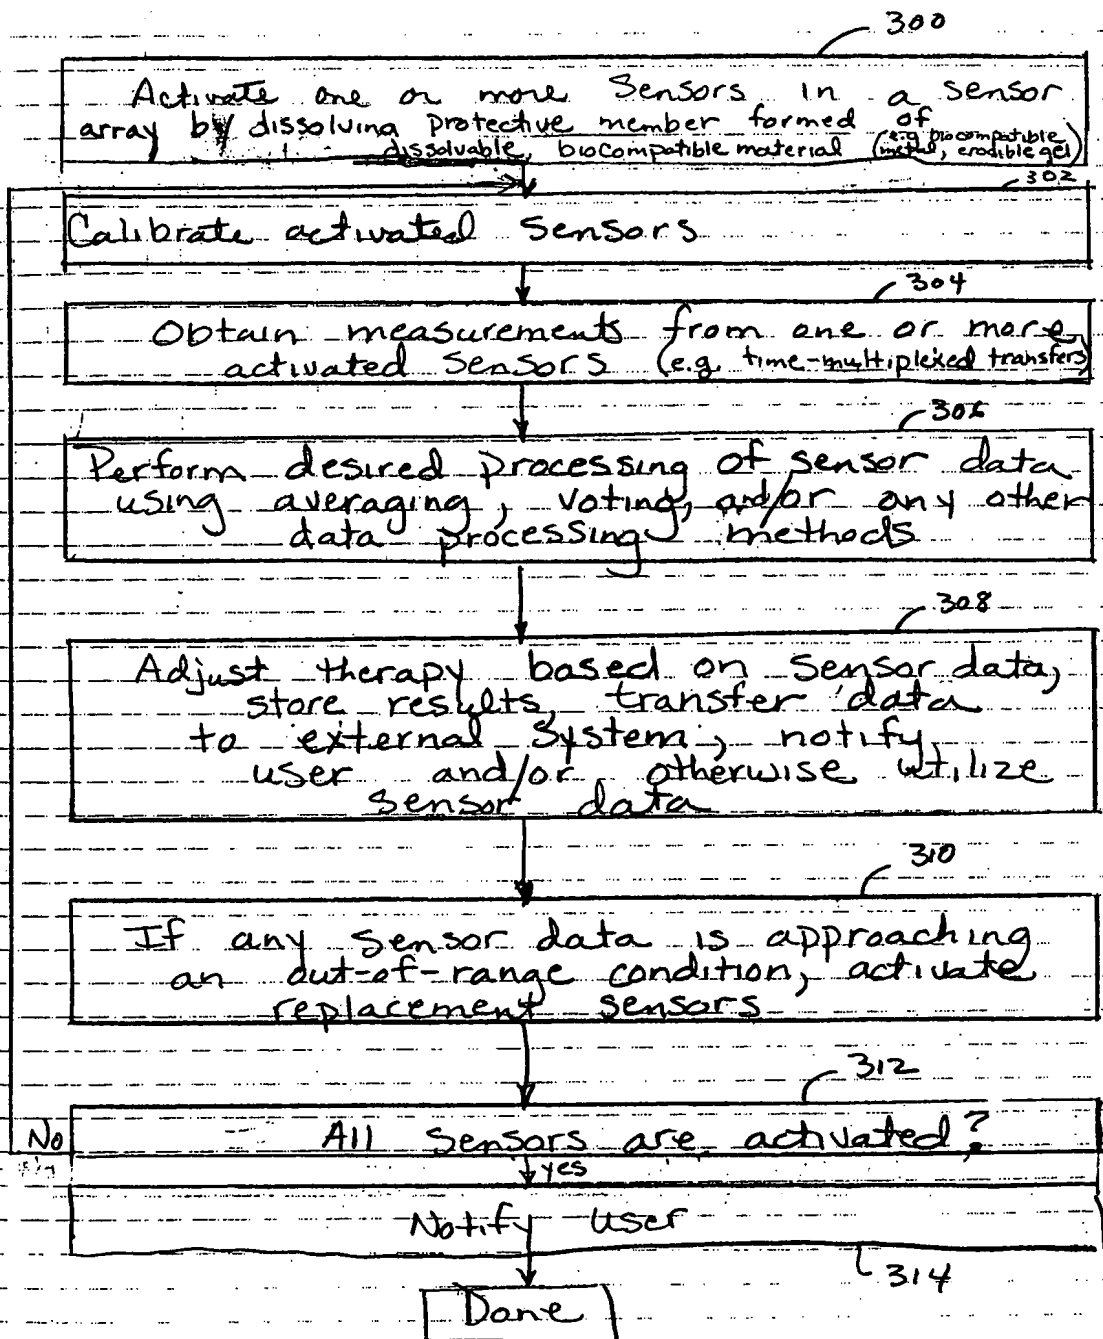 300
Activate one or more Sensors in a sensor
array by dissolving protective member formed of
dissolvable, biocompatible material (e.g. biocompatible
metal, erodible gel)
302
Calibrate activated Sensors
304
Obtain measurements from one or more
activated Sensors (e.g. time-multiplexed transfers)
306
Perform desired processing of sensor data
using averaging, voting, and/or any other
data processing methods
308
Adjust therapy based on Sensor data,
store results, transfer data
to external System, notify
user and/or otherwise utilize
Sensor data
310
If any sensor data is approaching
an out-of-range condition, activate
replacement sensors
312
No
All Sensors are activated?
yes
Notify user
314
Done